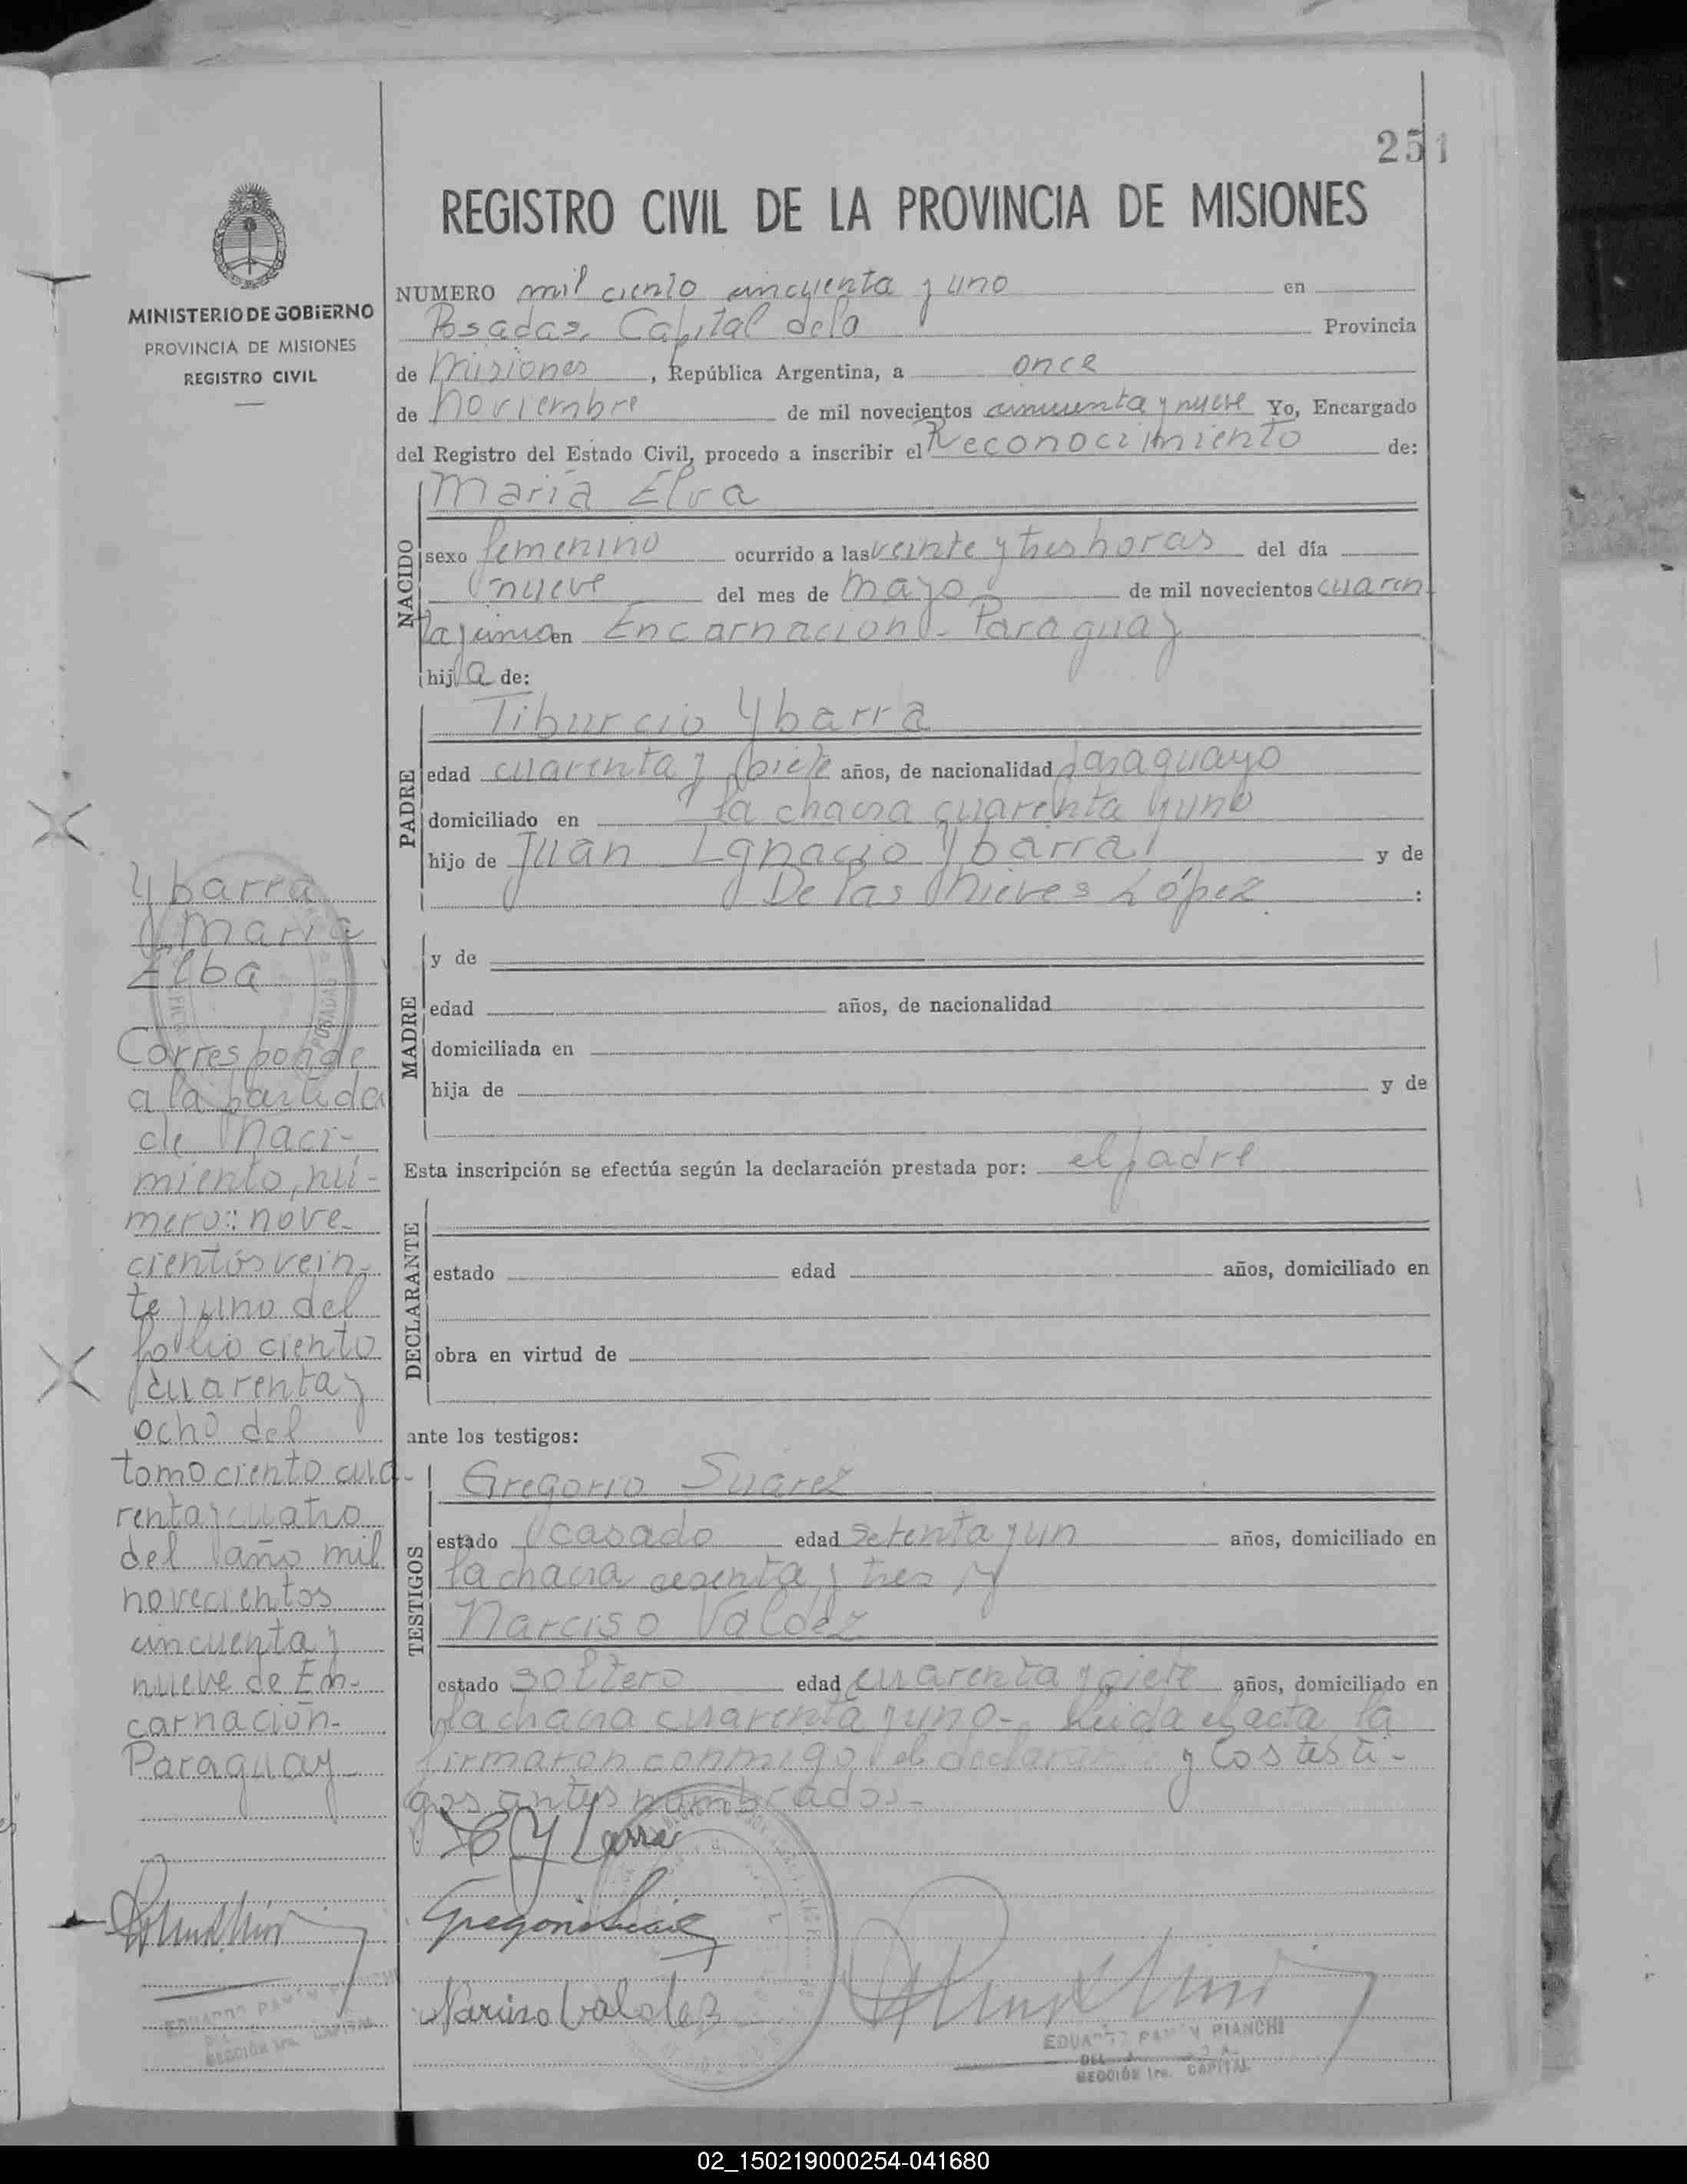 251
REGISTRO CIVIL DE LA PROVINCIA DE MISIONES
MINISTERIO DE GOBIERNO
PROVINCIA DE MISIONES
REGISTRO CIVIL
NUMERO mil ciento cincuenta y uno en
Posadas, Capital de la Provincia
de Misiones, República Argentina, a once
de noviembre de mil novecientos cincuenta y nueve Yo, Encargado
del Registro del Estado Civil, procedo a inscribir el Reconocimiento de:
NACIDO
Maria Elva
sexo femenino ocurrido a las veinte y tres horas del día
nueve del mes de mayo de mil novecientos cuaren
ta y en Encarnación - Paraguay
hija de:
PADRE
Tiburcio Ybarra
edad cuarenta y siete años, de nacionalidad paraguayo
domiciliado en la chacra cuarenta y uno
hijo de Juan Ignacio Ybarra y de
De las Nieves López :
MADRE
y de
edad años, de nacionalidad
domiciliada en
hija de y de
Esta inscripción se efectúa según la declaración prestada por: el padre
DECLARANTE
estado edad años, domiciliado en
obra en virtud de
ante los testigos:
TESTIGOS
Gregorio Suarez
estado casado edad setenta y un años, domiciliado en
la chacra sesenta y tres y
Narciso Valdez
estado soltero edad cuarenta y siete años, domiciliado en
la chacra cuarenta y uno - leida el acta la
firmaron conmigo el declarante y los testi-
gos antes nombrados.-
Narciso Valdez
EDUARDO RAMÓN BIANCHI
SECCIÓN 1ra. CAPITAL
Ybarra
Maria
Elba
Corresponde
a la partida
de naci-
miento, nú-
mero: nove-
cientos vein-
te y uno del
folio ciento
cuarenta y
ocho del
tomo ciento cua-
renta y cuatro
del año mil
novecientos
cincuenta y
nueve de En-
carnación-
Paraguay-
SECCIÓN 1ra. CAPITAL
02_150219000254-041680